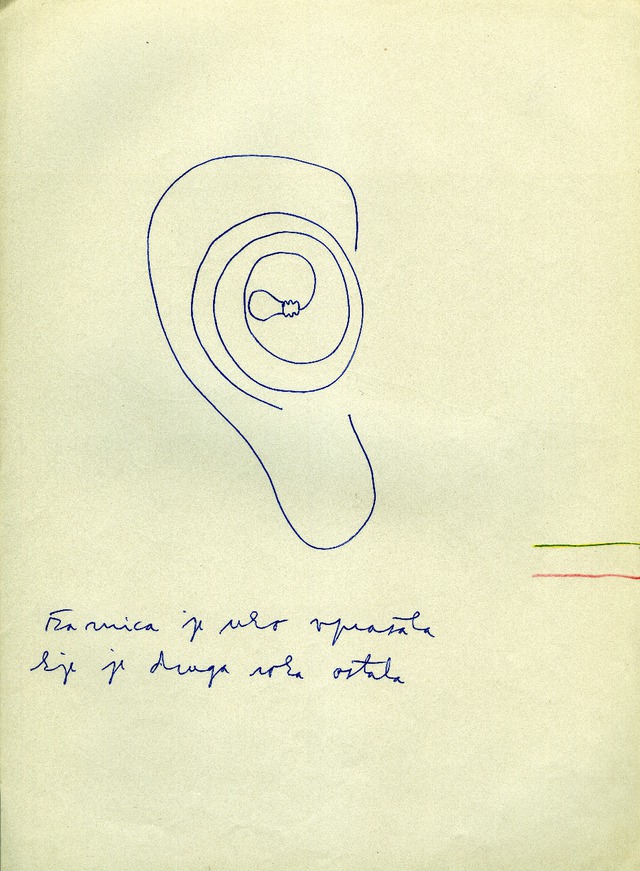 Žarnica je uho vprašala
kje je druga roka ostala